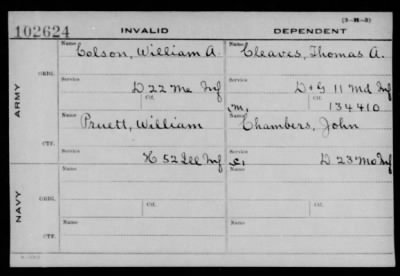 (3-H-3)
102624 INVALID DEPENDENT
Name Colson, William A. Name Cleaves, Thomas A.
ARMY
ORIG.
Service D 22 Me Inf Service D & G 11 Md Inf
Ctf. Ctf.
M. 134410
Name Pruett, William Name Chambers, John
CTF.
Service H 52 Inf Service D 23 Mo Inf
C.
NAVY
Name Name
ORIG.
Service Ctf. Service Ctf.
Name Name
CTF.
Service Service